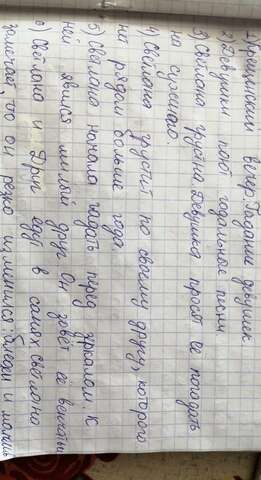 1) Крещенский вечер. Гадание девушек.
2) Девушки поют гадальные песни
3) Светлана грустна. Девушка просят её погадать
на суженого.
4) Светлана грустит по своему другу, которого
нет рядом больше года.
5) Светлана начала гадать перед зеркалом. К
ней явился милый друг. Он зовёт её венчаться
6) Светлана и Друг едут в санях. Светлана
замечает, что он резко изменился: бледен и молчалив